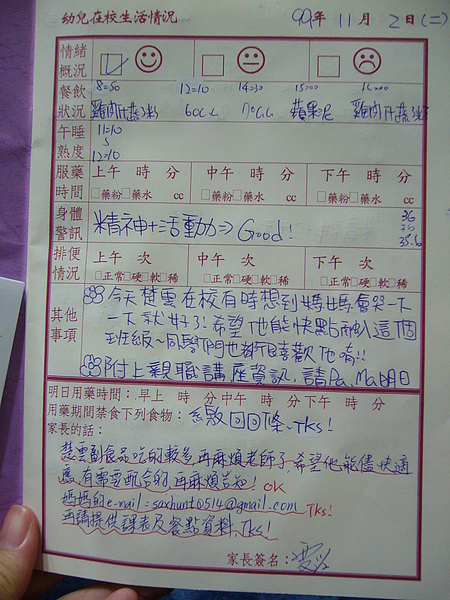 幼兒在校生活情況 99年 11月 2日(二)
情緒概況
餐飲狀況 8=50 12=10 14=30 15=00 16=00
雞肉什蔬粥 60c.c 70c.c 蘋果泥 雞肉什蔬粥
午睡熟度 11=10
5
12=10
服藥時間 上午 時 分 中午 時 分 下午 時 分
□藥粉□藥水 cc □藥粉□藥水 cc □藥粉□藥水 cc
身體警訊 精神+活動力=> Good! 36
35.6
排便情況 上午 次 中午 次 下午 次
□正常□硬□軟□稀 □正常□硬□軟□稀 □正常□硬□軟□稀
其他事項 今天 在校有時想到媽媽會哭一下
一下就好了!希望他能快點融入這個
班級~同學們也都很喜歡他唷!!
附上親職講座資訊,請Pa.Ma明日
明日用藥時間:早上 時 分中午 時 分下午 時 分
用藥期間禁食下列食物:繳回回條、Tks!
家長的話:
副食品吃的較多,再麻煩老師了,希望他能儘快適
應,有需要配合的,再麻煩告知! OK
媽媽的e-mail:saxhunt0514@gmail.com Tks!
再請提供課表及餐點資料,Tks!
家長簽名: